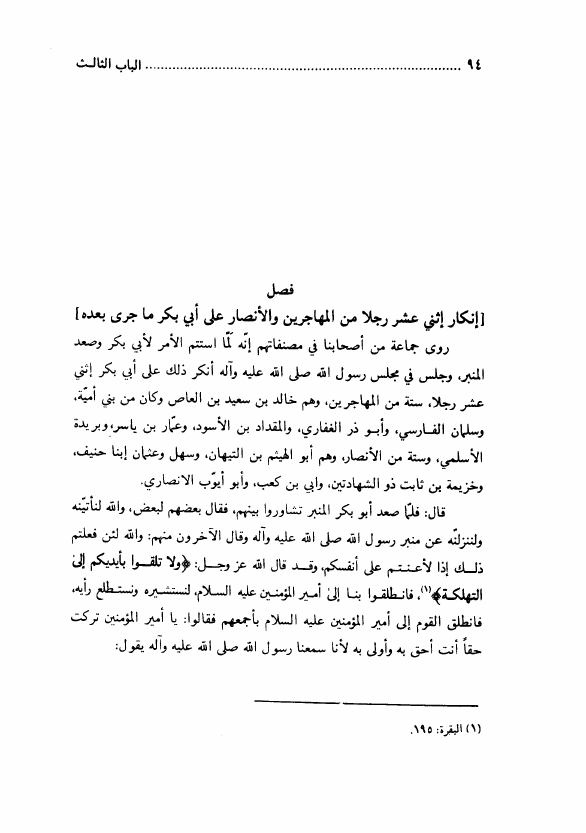 ٩٤ ..................................................................... الباب الثالث
فصل
[إنكار إثني عشر رجلا من المهاجرين والأنصار على أبي بكر ما جرى بعده]
روى جماعة من أصحابنا في مصنفاتهم إنّه لمّا استتم الأمر لأبي بكر وصعد
المنبر، وجلس في مجلس رسول الله صلى الله عليه وآله أنكر ذلك على أبي بكر إثني
عشر رجلا، ستة من المهاجرين، وهم خالد بن سعيد بن العاص وكان من بني أميّة،
وسلمان الفارسي، وأبو ذر الغفاري، والمقداد بن الأسود، وعمّار بن ياسر، وبريدة
الأسلمي، وستة من الأنصار، وهم أبو الهيثم بن التيهان، وسهل وعثمان إبنا حنيف،
وخزيمة بن ثابت ذو الشهادتين، وابي بن كعب، وأبو أيّوب الانصاري.
قال: فلمّا صعد أبو بكر المنبر تشاوروا بينهم، فقال بعضهم لبعض، والله لنأتيّنه
ولننزلنّه عن منبر رسول الله صلى الله عليه وآله وقال الآخرون منهم: والله لئن فعلتم
ذلك إذا لأعنتم على أنفسكم، وقد قال الله عز وجل: ﴿ولا تلقوا بأيديكم إلىٰ
التهلكة﴾(١)، فانطلقوا بنا إلىٰ أمير المؤمنين عليه السلام، لنستشيره ونستطلع رأيه،
فانطلق القوم إلى أمير المؤمنين عليه السلام بأجمعهم فقالوا: يا أمير المؤمنين تركت
حقاً أنت أحق به وأولى به لأنا سمعنا رسول الله صلى الله عليه وآله يقول:
(١) البقرة: ١٩٥.